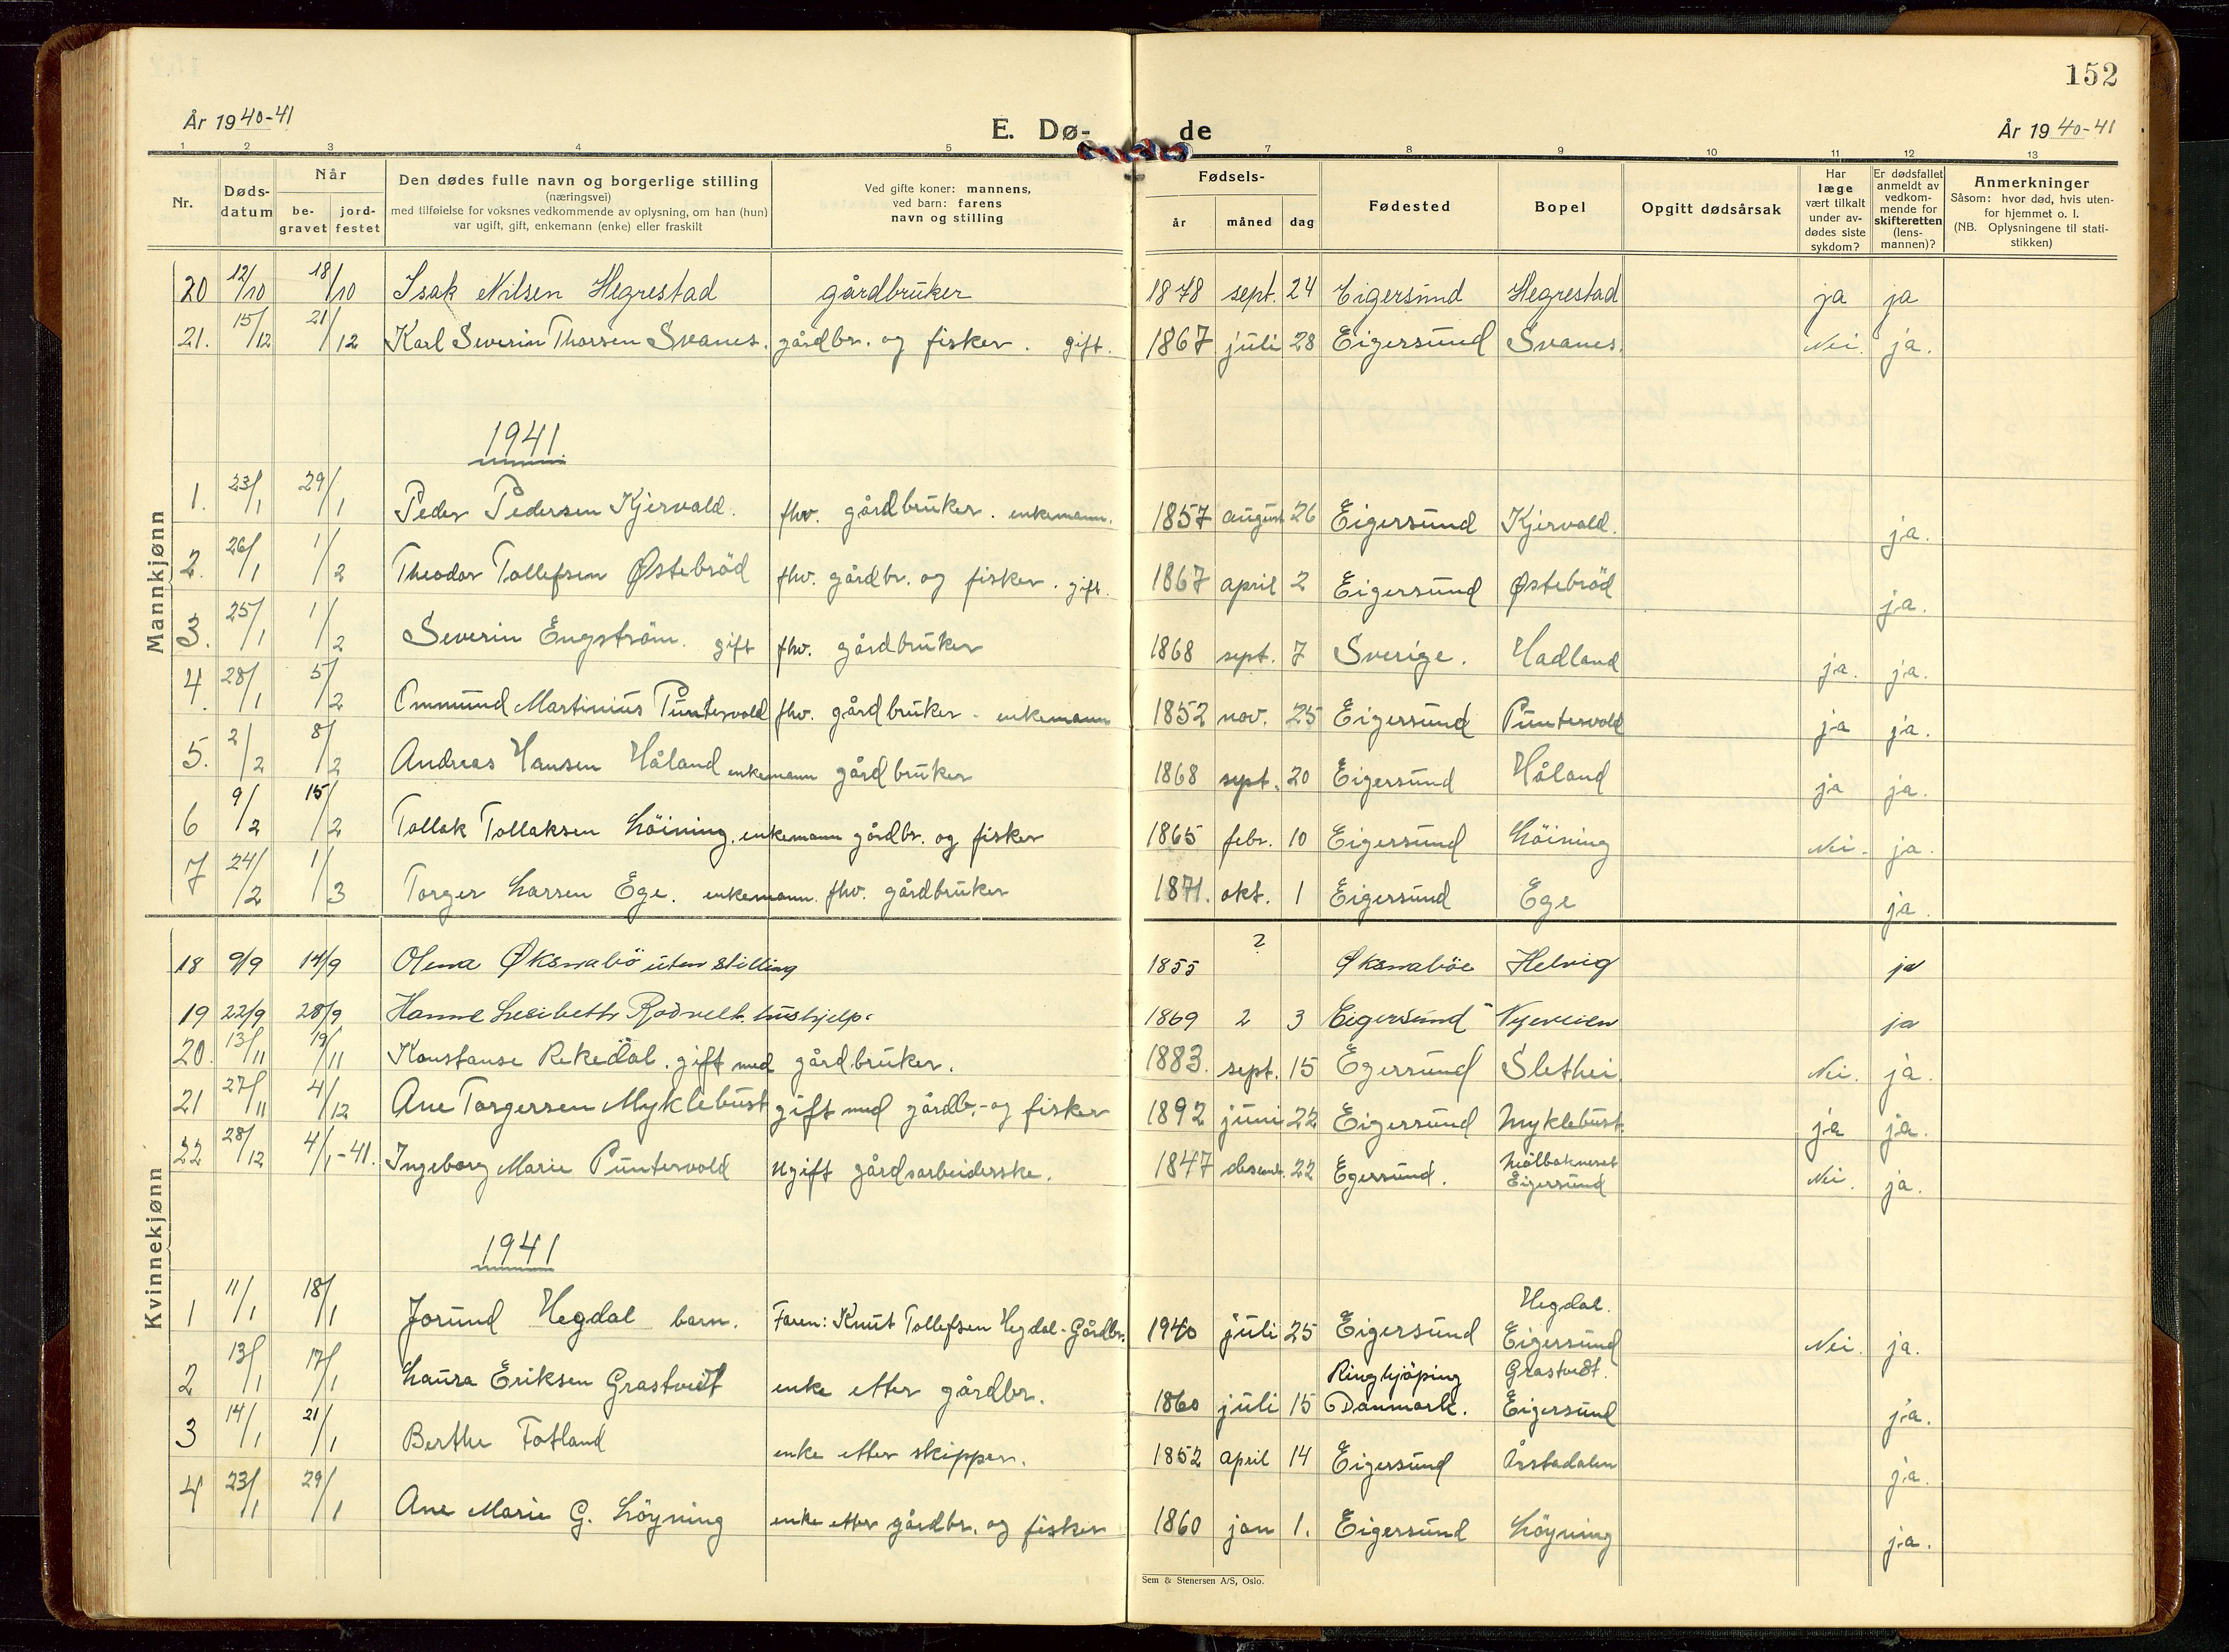 152
År 1940-41
E. Dø- de
År 1940-41
1 2 3 4 5 7 8 9 10 11 12 13
Nr.
Døds-
datum
Når
be-
gravet
jord-
festet
Den dødes fulle navn og borgerlige stilling
(næringsvei)
med tilføielse for voksnes vedkommende av oplysning, om han (hun)
var ugift, gift, enkemann (enke) eller fraskilt
Ved gifte koner: mannens,
ved barn: farens
navn og stilling
Fødsels-
år
måned
dag
Fødested
Bopel
Opgitt dødsårsak
Har
læge
vært tilkalt
under av-
dødes siste
sykdom?
Er dødsfallet
anmeldt av
vedkom-
mende for
skifteretten
(lens-
mannen)?
Anmerkninger
Såsom: hvor død, hvis uten-
for hjemmet o. l.
(NB. Oplysningene til stati-
stikken)
Mannkjønn
20 12/10 18/10 Isak Nilsen Hegrestad gårdbruker 1878 sept. 24 Eigersund Hegrestad ja ja
21. 15/12 21/12 Karl Severin Thorsen Svanes. gårdbr. og fisker. gift. 1867 juli 28 Eigersund Svanes. Nei. ja.
1941
1. 23/1 29/1 Peder Pedersen Kjervald. fhv. gårdbruker. enkemann. 1857 august 26 Eigersund Kjervald. ja.
2. 26/1 1/2 Theodor Tollefsen Østebröd fhv. gårdbr. og fisker. gift. 1867 april 2 Eigersund Østebröd ja.
3. 25/1 1/2 Severin Engström. gift fhv. gårdbruker 1868 sept. 7 Sverige. Hadland ja. ja.
4. 28/1 5/2 Ommund Martinius Puntervold fhv. gårdbruker - enkemann 1852 nov. 25 Eigersund Puntervold ja ja.
5. 2/2 8/2 Andreas Hansen Håland enkemann gårdbruker 1868 sept. 20 Eigersund Håland ja ja.
6 9/2 15/2 Tollak Tollaksen Löining. enkemann gårdbr. og fisker 1865 febr. 10 Eigersund Löining Nei. ja.
7 24/2 1/3 Torger Larsen Ege. enkemann. fhv. gårdbruker 1871. okt. 1 Eigersund Ege ja.
Kvinnekjønn
18 9/9 14/9 Olena Øksnabö uten stilling 1855 ? Øksnaböe Helvig ja
19 22/9 28/9 Hanne Lisibeth Rodvelt. hushjelp. 1869 2 3 Eigersund Nyeveien ja
20. 13/11 19/11 Konstanse Rekedal. gift med gårdbruker. 1883. sept. 15 Egersund Slethei. Nei. ja.
21 27/11 4/12 Ane Torgersen Myklebust gift med gårdb.- og fisker 1892 juni 22 Eigersund Myklebust. ja ja.
22 28/12 4/1-41. Ingeborg Marie Puntervold ugift gårdsarbeiderske. 1847 desemb. 22 Egersund. Eigersund Nei. ja.
1941
1 11/1 18/1 Jorund Hegdal barn. Faren: Knut Tollefsen Hegdal - Gårdbr. 1940 juli 25 Eigersund Hegdal. Eigersund Nei. ja.
2 13/1 17/1 Laura Eriksen Grastveit enke etter gårdbr. 1860 juli 15 Ringkjöping Danmark. Grastveit. Eigersund ja.
3 14/1 21/1 Berthe Fotland enke etter skipper. 1852 april 14 Eigersund Årstadalen ja.
4 23/1 29/1 Ane Marie G. Löyning enke etter gårdbr. og fisker 1860 jan 1. Eigersund Löyning ja.
Sem & Stenersen A/S, Oslo.